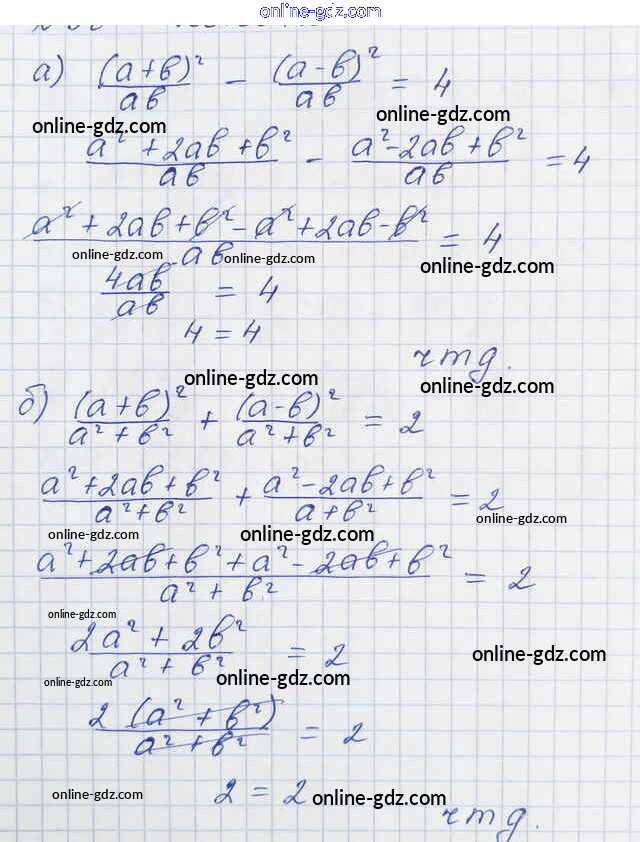 online-gdz.com
а) (a+b)²/ab - (a-b)²/ab = 4
online-gdz.com online-gdz.com
a²+2ab+b²/ab - a²-2ab+b²/ab = 4
a²+2ab+b²-a²+2ab-b²/ab = 4
online-gdz.com online-gdz.com online-gdz.com
4ab/ab = 4
4 = 4
чтд.
online-gdz.com online-gdz.com
б) (a+b)²/a²+b² + (a-b)²/a²+b² = 2
a²+2ab+b²/a²+b² + a²-2ab+b²/a+b² = 2
online-gdz.com online-gdz.com online-gdz.com
a²+2ab+b²+a²-2ab+b²/a²+b² = 2
online-gdz.com
2a²+2b²/a²+b² = 2
online-gdz.com online-gdz.com online-gdz.com
2(a²+b²)/a²+b² = 2
2 = 2
online-gdz.com online-gdz.com
чтд.